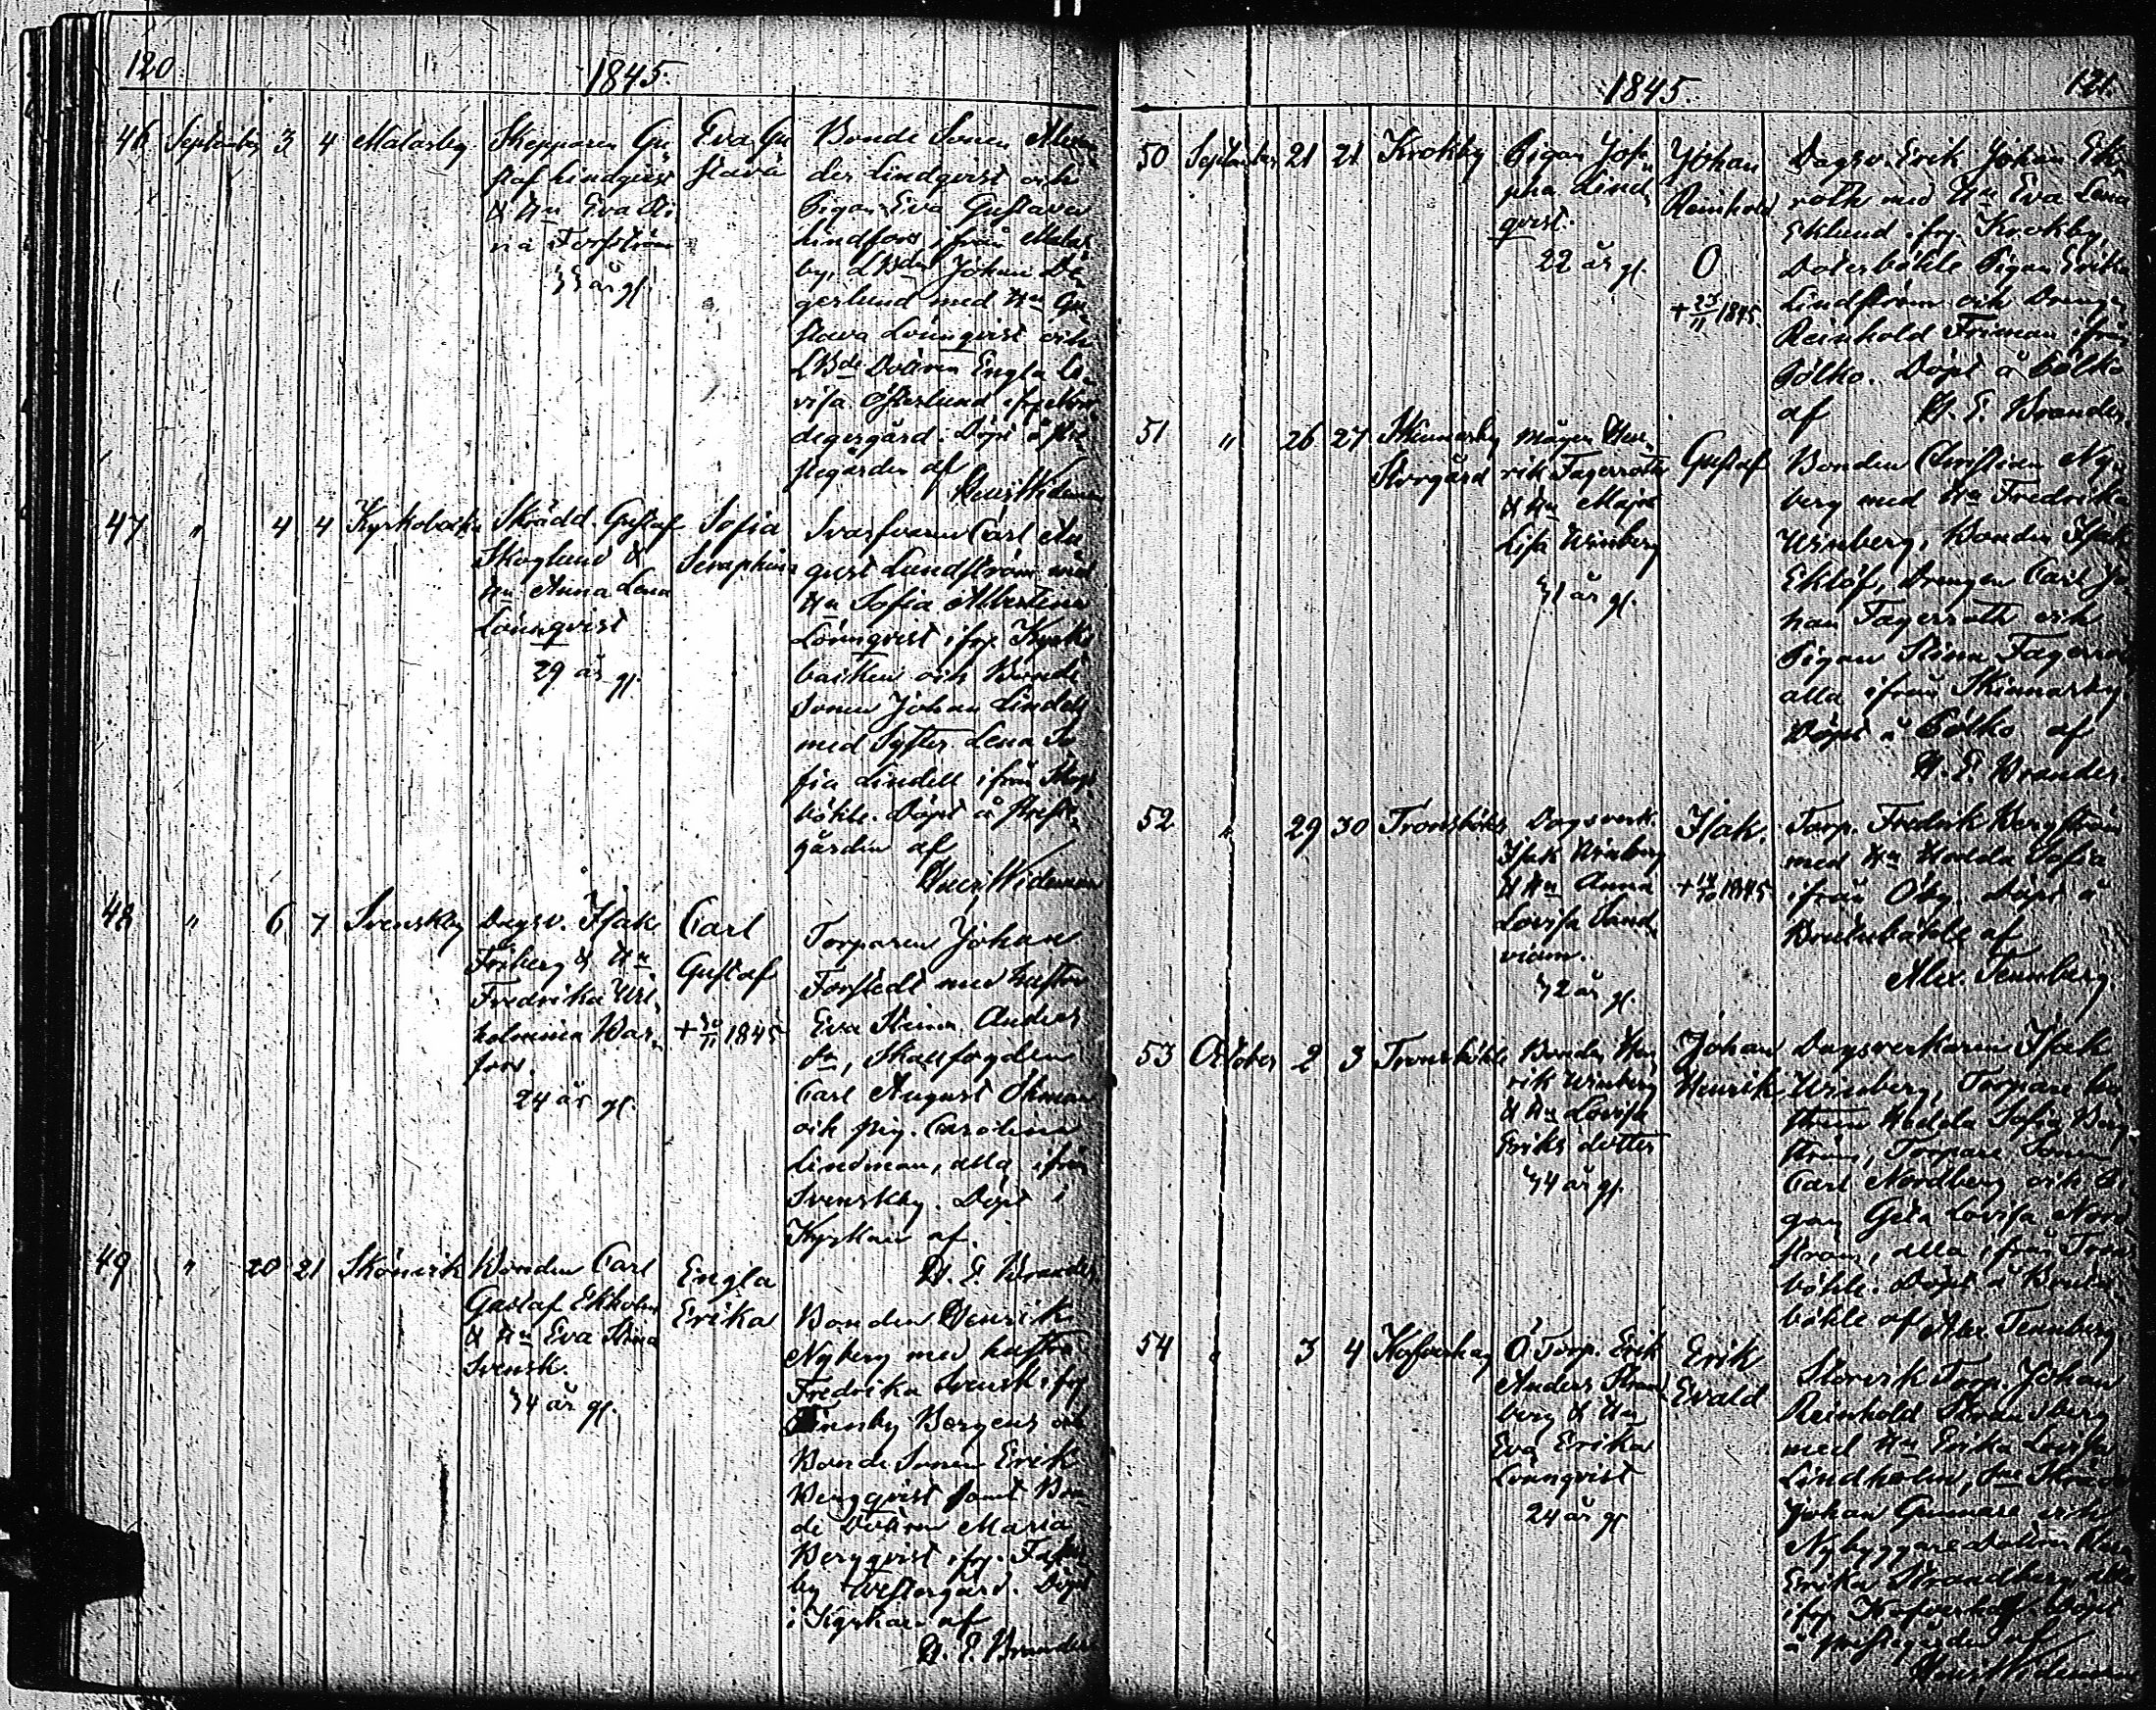 120
1845.
46 September 3 4 Malarby
Skepparen Gu
staf Lindqvist
& Hu Eva Ma
ria Forsström
33 år gl.
Eva Gu
stava
Bonde Sonen
der Lindqvist och
Pigan Eva Gustava
Lindfors ifrån Malar
by, Johan De
gerlund med Hu Gu
stava Lönnqvist och
Dottren Engla Lo
visa Österlund
degergård. Döpt å Pre
stegården af
Wideman
47 " 4 4 Kyrkobacken
Skrädd. Gustaf
Skoglund &
Hu Anna Lena
Lönnqvist
29 år gl.
Sofia
Seraphina
Svarfvaren Carl Au
gust Lundström med
Hu Sofia Albertina
Lönnqvist ifrn Kyrko
backen och Bonde
Sonen Johan Lindell
med Syster Lena So
fia Lindell ifrån
böhle. Döpt å Preste
gården af
Widenman
48 " 6 7 Svenskby
Dagsv. Isak
Friberg & Hu
Fredrika Wil
helmina War
fors.
24 år gl.
Carl
Gustaf
+ 30/11 1845
Torparen Johan
Forstedt med hustru
Eva Stina Anders
dr, Skallfogden
Carl August Öhman
och pig. Carolina
Lindman, alla ifrån
Svenskby. Döpt i
Kyrkan af
H. E. Brander
49 " 20 21 Skönvik
Bonden Carl
Gustaf Ekholm
& Hu Eva Stina
Svensk.
34 år gl.
Engla
Erika
Bonden Henrik
Nyberg med hustru
Fredrika Svensk ifrn
Bergens och
Bonde Sonen Erik
Bergqvist samt Bon
de Dottren Maria
Bergqvist ifrn
by Westergård. Döpt
i Kyrkan af
H. E. Brander
1845.
121.
50 September 21 21 Krokby
Pigan Jose
pha Lind
qvist.
22 år gl.
Johan
Reinhold
O
+ 23/11 1845.
Dagsv. Erik Johan Ek
roth med Hu Eva Lena
Eklund ifrn Krokby,
böhle Pigan Erika
Lindström och Drengen
Reinhold Friman ifrån
Pölko. Döpt å Pölko
af H. E. Brander.
51 " 26 27 Skinnarby
Storgård
Mågen Hen
rik Fagerroth
& Hu Maja
Lisa Winberg
31 år gl.
Gustaf
Bonden Christian Ny
berg med Hu Fredrika
Winberg, Bonden Isak
Eklöf, Drengen Carl Jo
han Fagerroth och
Pigan Stina Fagerroth
alla ifrån Skinnarby.
Döpt å Pölko af
H. E. Brander.
52 " 29 30 Tronsböhle
Dagsverk.
Isak Winberg
& Hu Anna
Lovisa Sand
vian.
32 år gl.
Isak.
1845
Torp. Fredrik Bergström
med Hu Hedda Sofia
ifrån Öby. Döpt å
af
Alex. Tennberg.
53 October 2 3 Tronsböhle
Bonden Hen
rik Winberg
& Hu Lovisa
Eriks dotter
34 år gl.
Johan
Henrik
Dagsverkaren Isak
Winberg, Torpare hu
strun Hedda Sofia Berg
ström, Torpare Sonen
Carl Nordberg och Pi
gan Greta Lovisa Nord
ström, alla ifrån Trons
böhle. Döpt å
böhle af Alex. Tennberg
54 " 3 4
Ö Torp. Erik
Anders Strand
berg & Hu
Eva Erika
Lönnqvist
24 år gl
Erik
Evald
Storvik Torp. Johan
Reinhold Strandberg
med Hu Erika Lovisa
Lindholm,
Johan och
Nybyggare Dottren
Erika Strandberg, alla
ifrn Döpt
å Prestegården af
Widenman